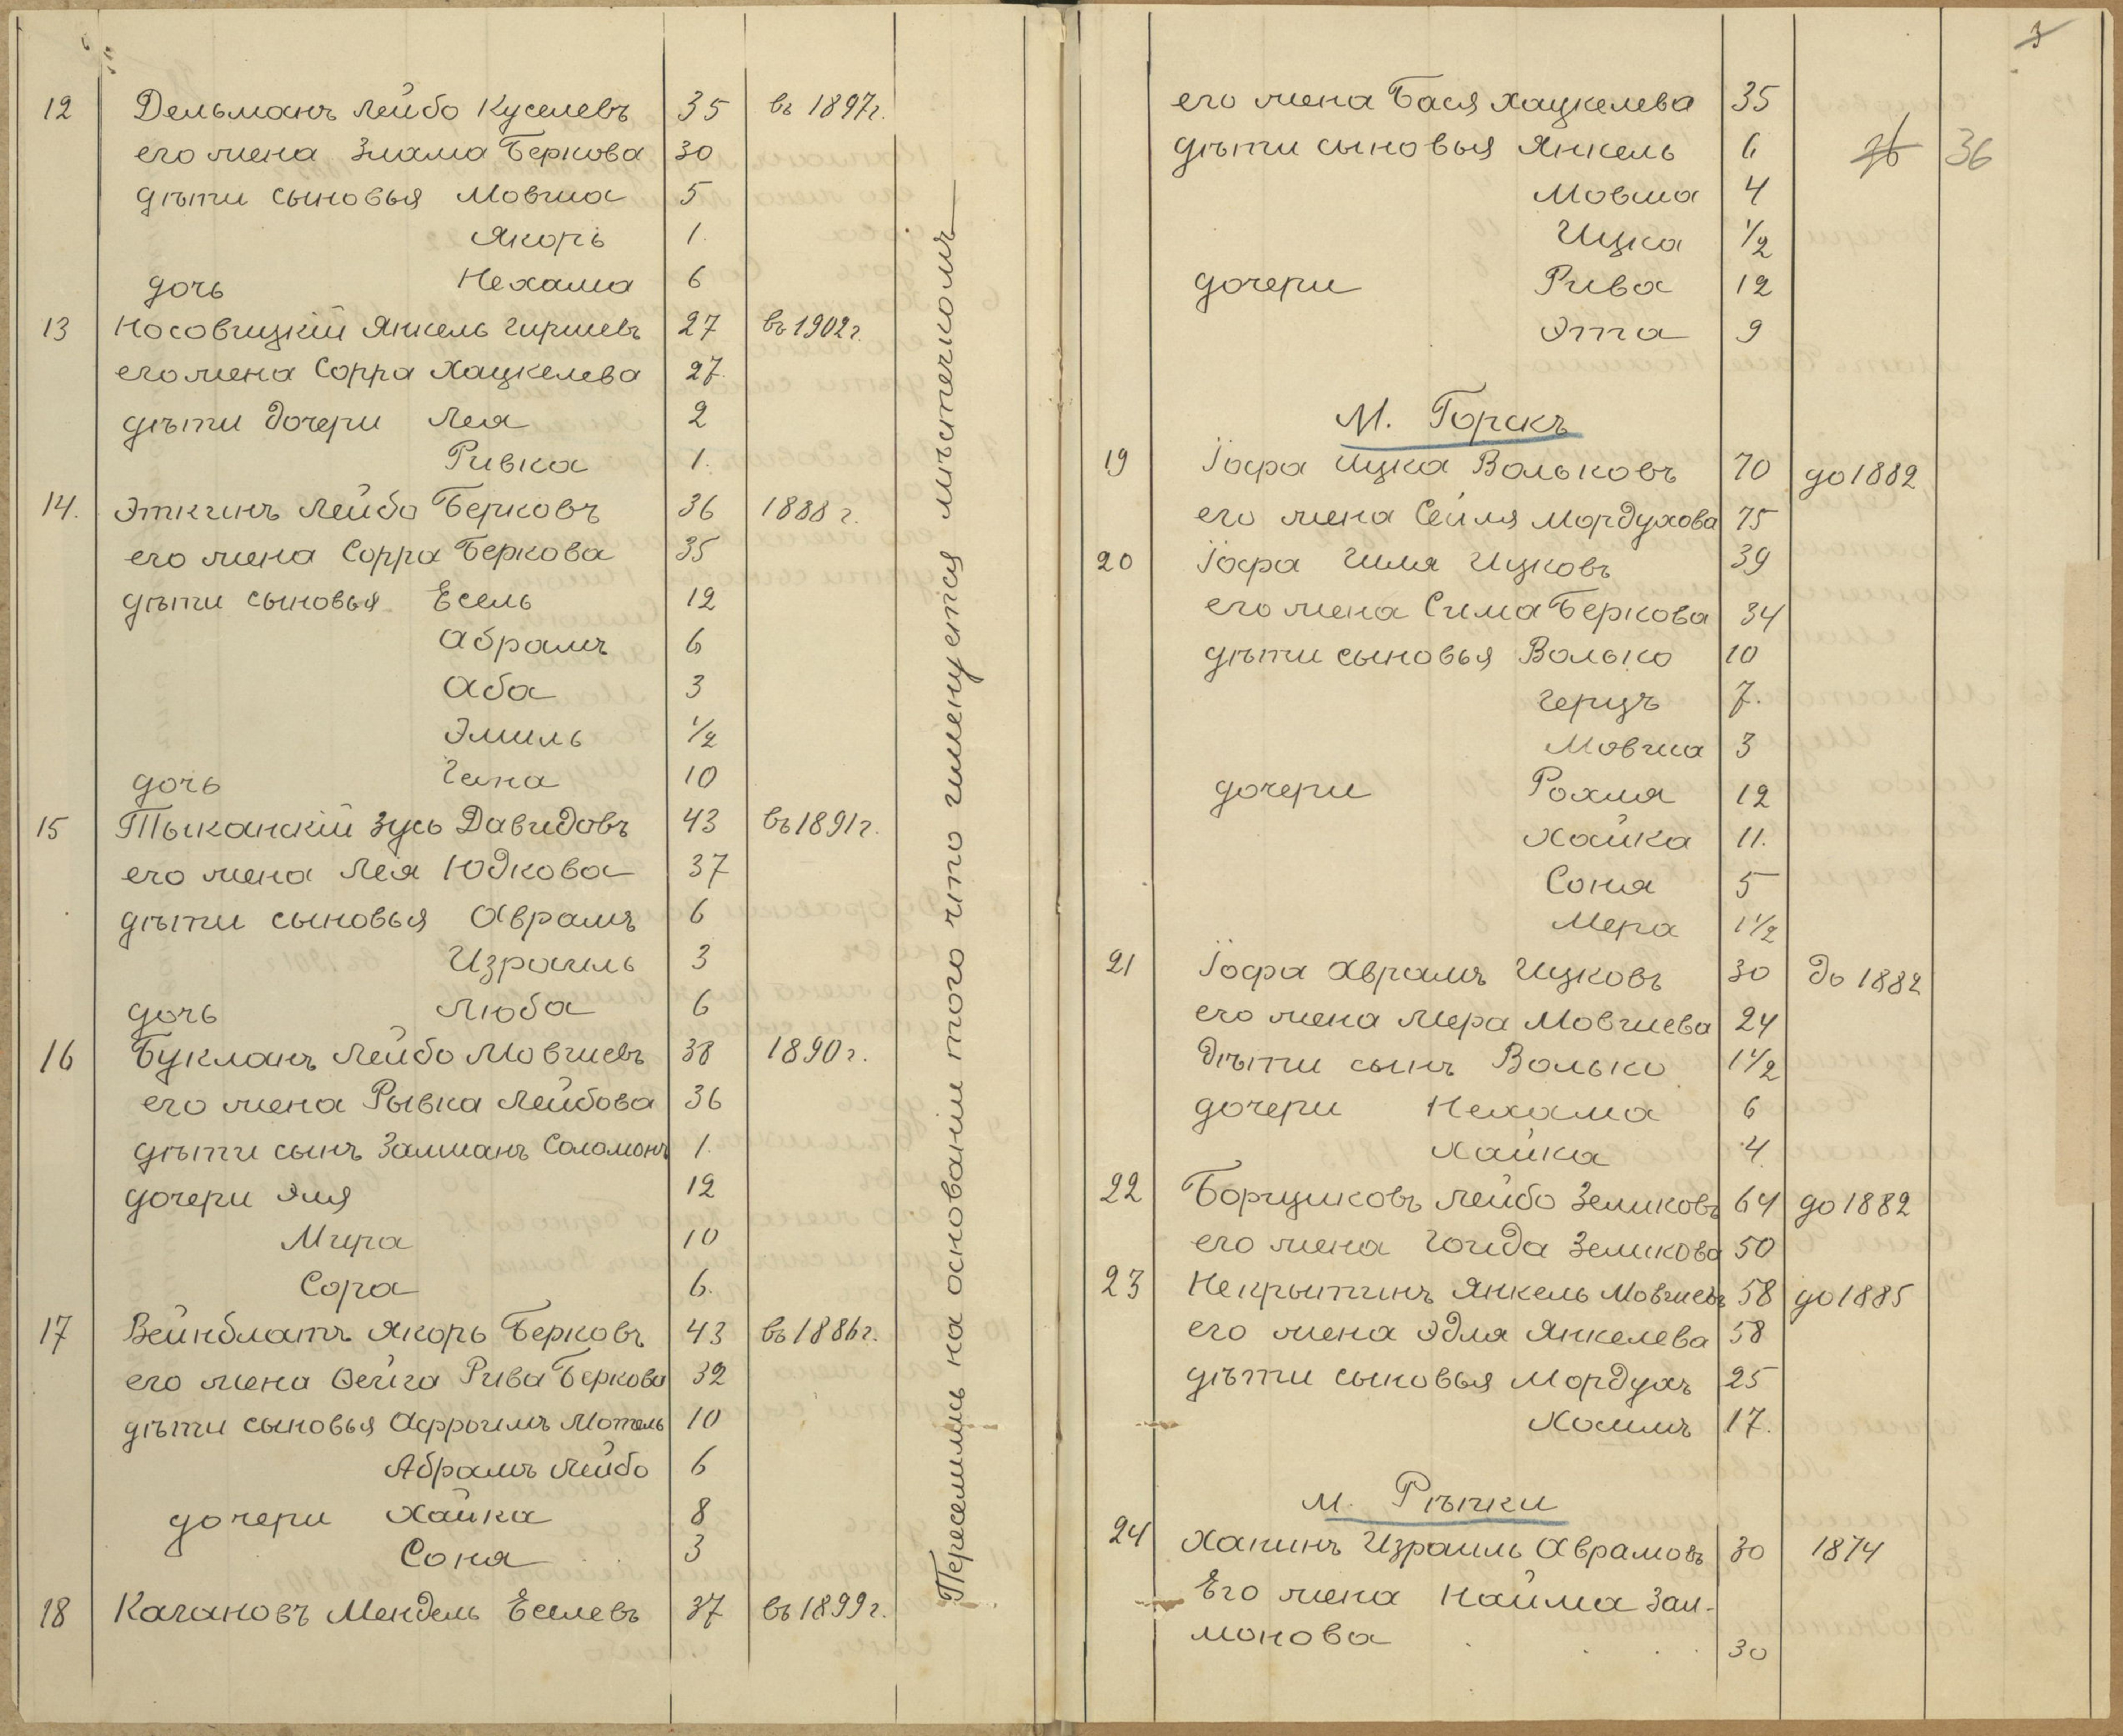 12 Дельманъ Лейбо Куселевъ 35 въ 1897г.
его жена Злама Беркова 30
дѣти сыновья Мовша 5
Якоръ 1.
дочь Нехама 6
13 Носовицкій Янкель Гиршевъ 27 въ 1902г.
его жена Сорра Хацкелева 27.
дѣти дочери Лея 2
Ривка 1.
14. Эткинъ Лейбо Берковъ 36 1888 г.
его жена Сорра Беркова 35
дѣти сыновья Есель 12
Абрамъ 6
Аба 3
Эмиль ½
дочь Гана 10
15 Тыканскій Зусь Давидовъ 43 въ 1891г.
его жена Лея Юдкова 37
дѣти сыновья Аврамъ 6
Израиль 3
дочь Люба 6
16 Букланъ Лейбо Мовшевъ 38 1890г.
его жена Рывка Лейбова 36
дѣти сынъ Залманъ Соломонъ 1.
дочери Эля 12
Мира 10
Сора 6.
17 Вейнблатъ Якоръ Берковъ 43 въ 1886г.
его жена Фейга Рива Беркова 32
дѣти сыновья Афроимъ Мотель 10
Абрамъ Лейбо 6
дочери Хайка 8
Соня 3
18 Кагановъ Мендель Еселевъ 37 въ 1899г.
Переселились на основаніи того что именуется мѣстечкомъ
3
его жена Бася Хацкелева 35
дѣти сыновья Янкель 6 36
Мовша 4
Ицка ½
дочери Рива 12
Этта 9
М. Горскъ
19 Іофа Ицка Вольковъ 70 до 1882
его жена Сейля Мордухова 75
20 Іофа Гиля Ицковъ 39
его жена Сима Беркова 34
дѣти сыновья Волько 10
Герцъ 7.
Мовша 3
дочери Рохля 12
Хайка 11.
Соня 5
Мера 1½
21 Іофа Аврамъ Ицковъ 30 до 1882
его жена Мера Мовшева 24
дѣти сынъ Волько 1½
дочери Нехама 6
Хайка 4.
22 Борщиковъ Лейбо Зеликовъ 64 до 1882
его жена Гоида Зеликова 50
23 Некрытинъ Янкель Мовшевъ 58 до 1885
его жена Эдля Янкелева 58
дѣти сыновья Мордухъ 25
Хаимъ 17.
м. Рѣпки
24 Ханинъ Израиль Аврамовъ 30 1874
Его жена Найма Зал-
монова 30